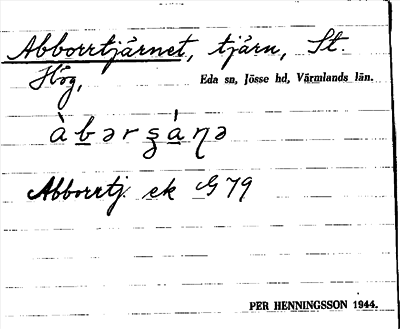 Abborrtjärnet, tjärn, St.
Hög, Eda sn, Jösse hd, Värmlands län.
Abborrtj. ek G 79
PER HENNINGSSON 1944.